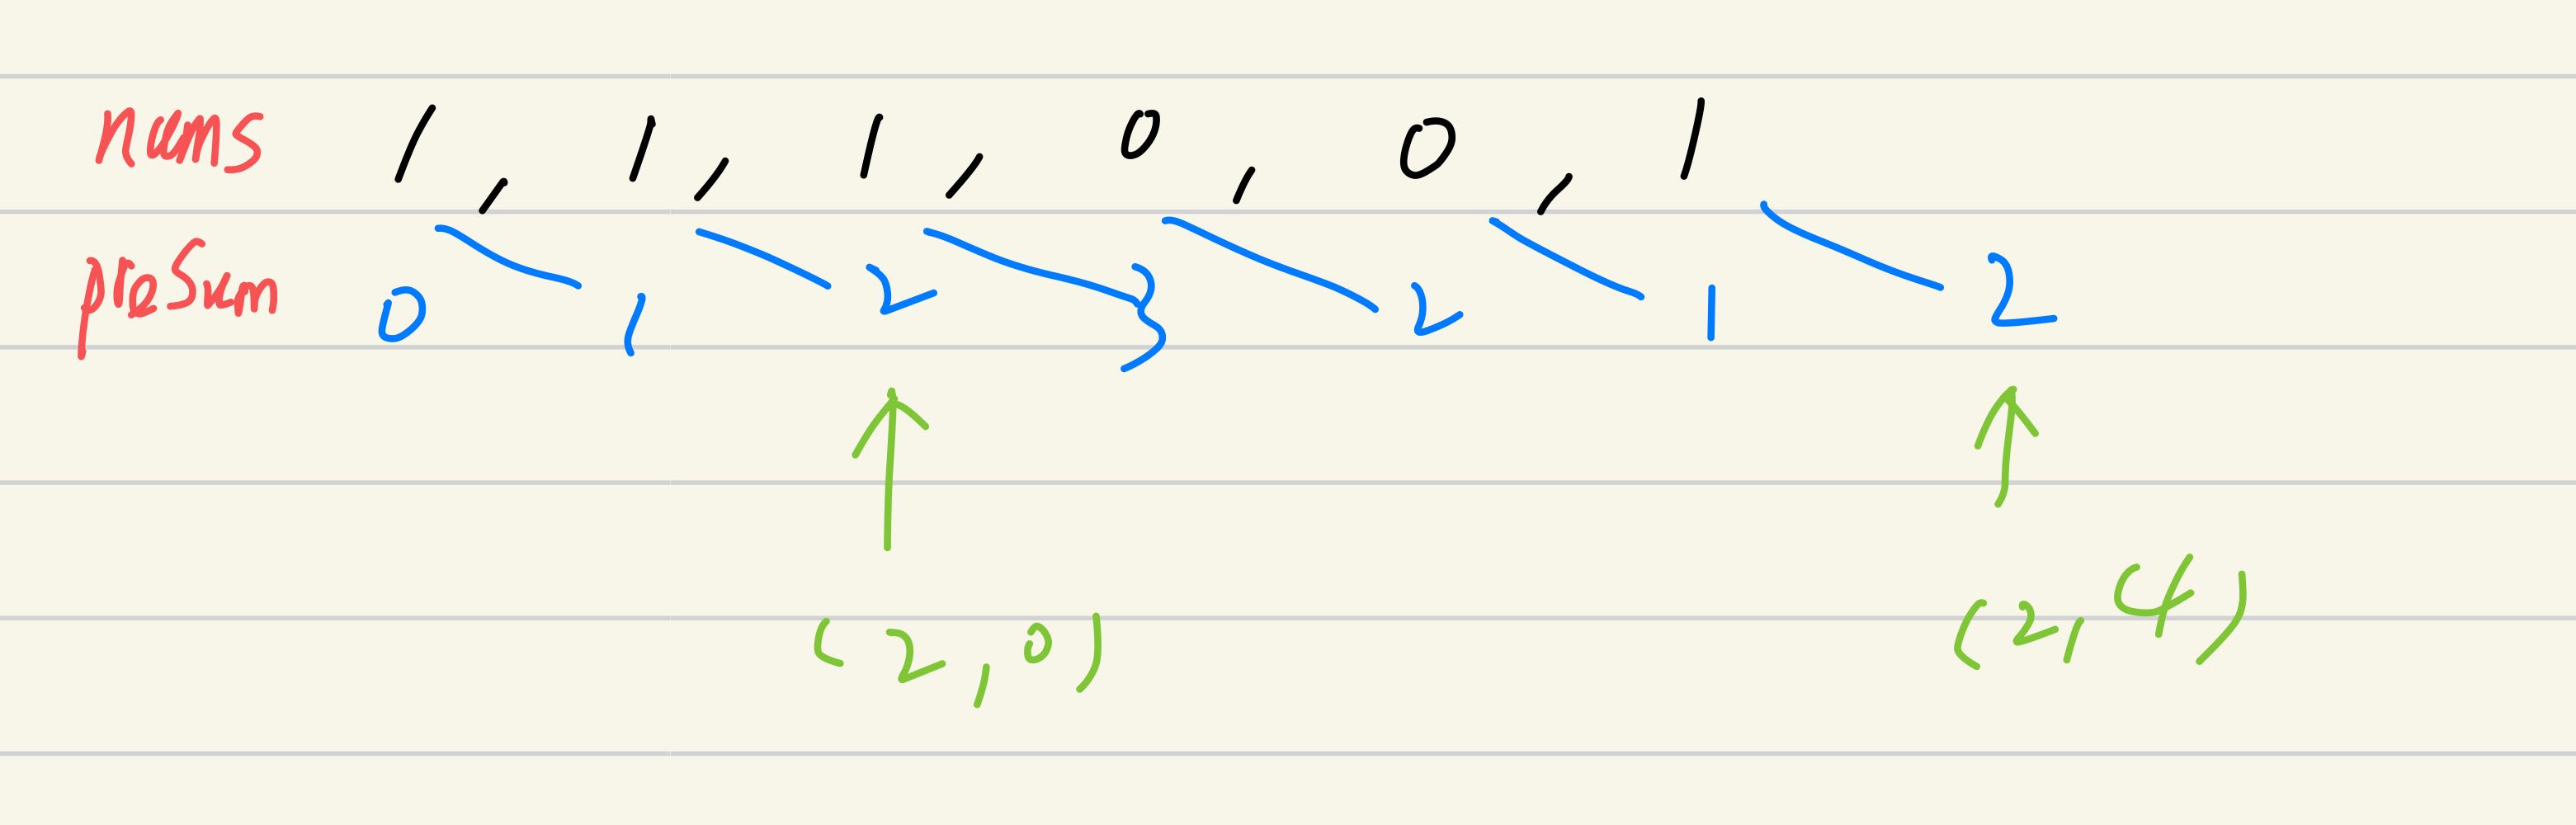 nums 1, 1, 1, 0, 0, 1
preSum 0 1 2 3 2 1 2
(2,0) (2,4)